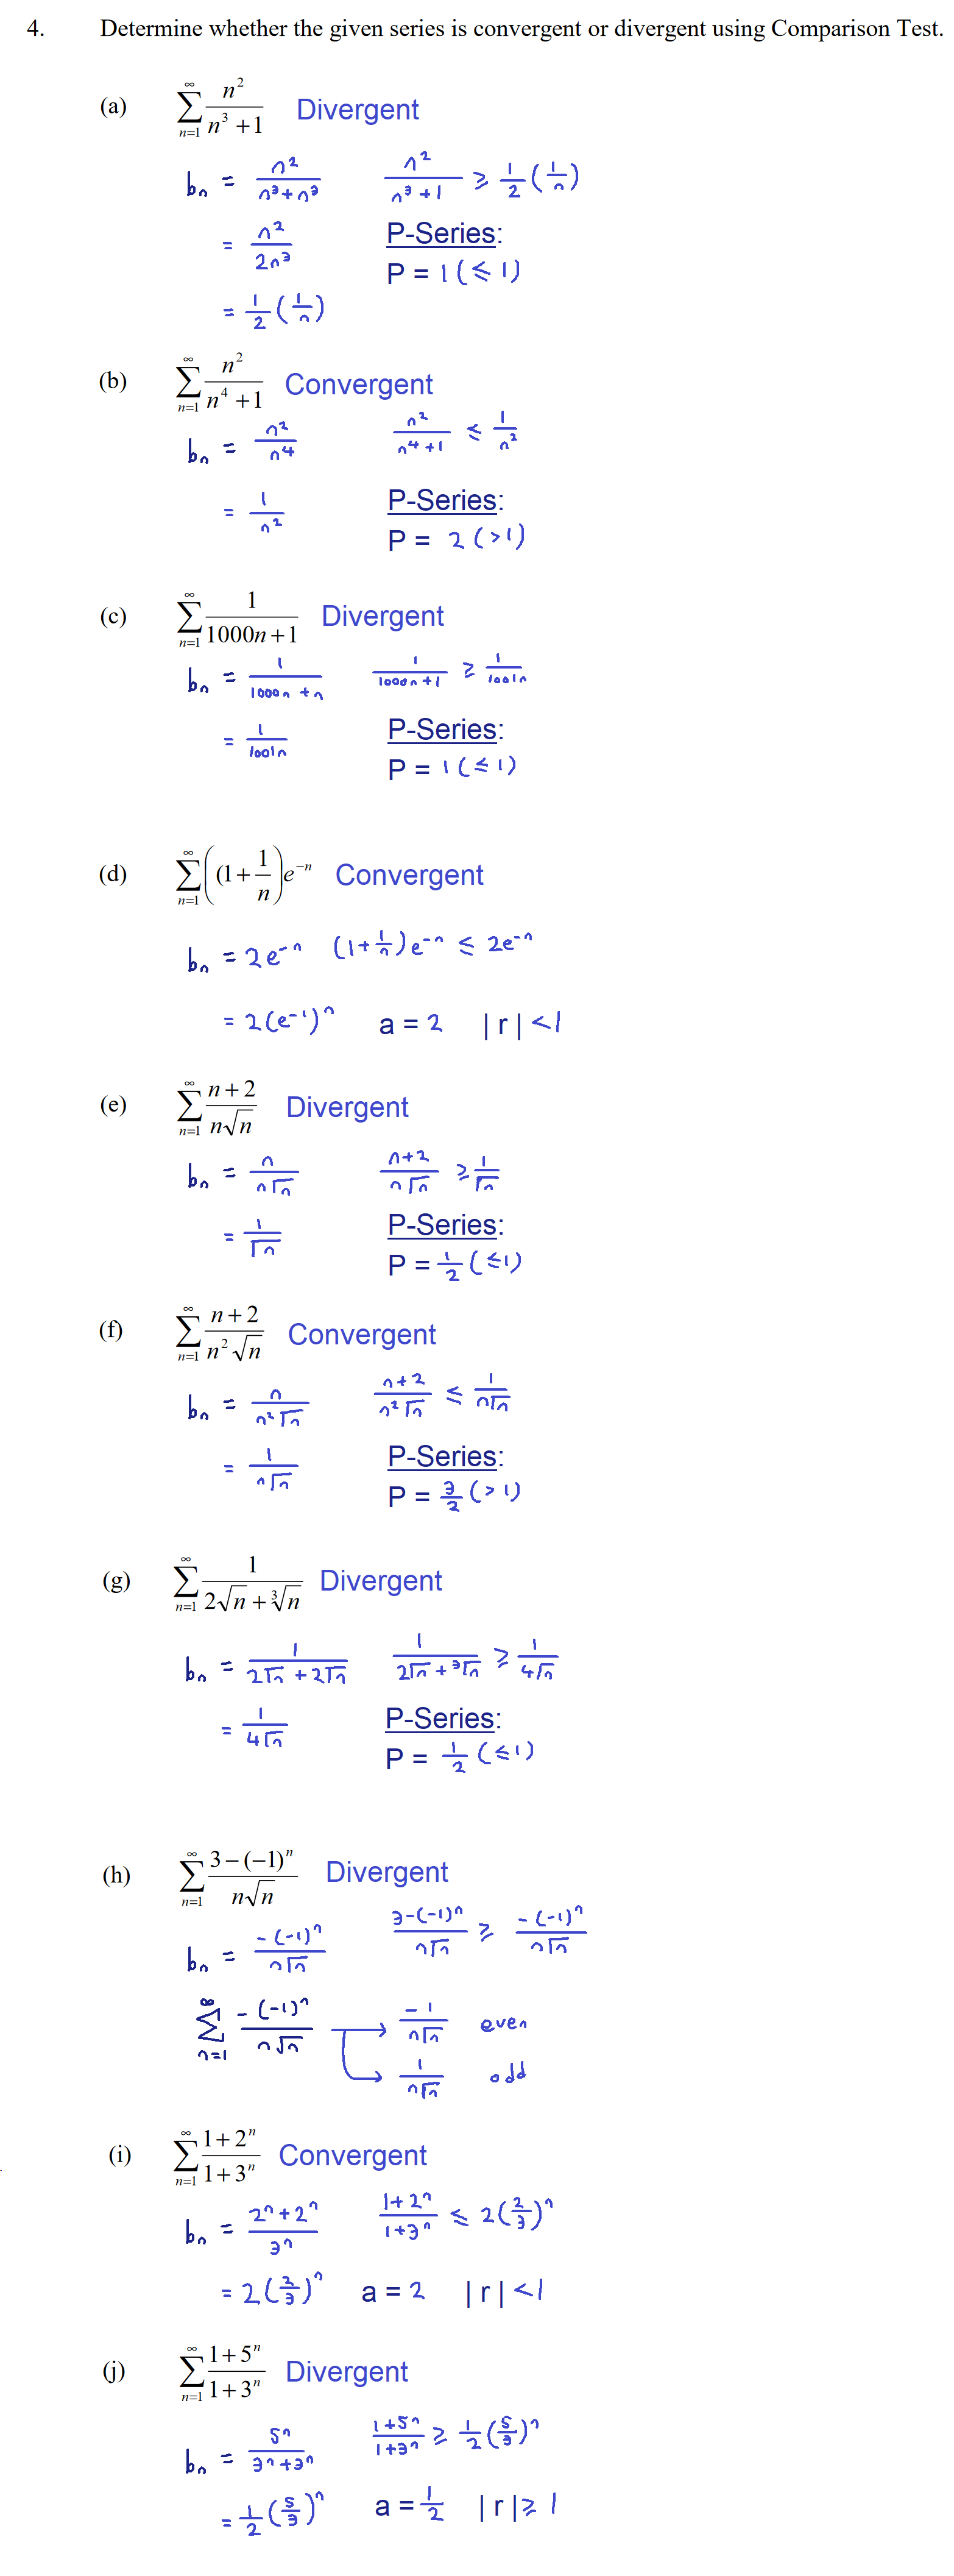 4. Determine whether the given series is convergent or divergent using Comparison Test.
(a) \sum_{n=1}^{\infty} \frac{n^2}{n^3+1} Divergent
b_n = \frac{n^2}{n^3+n^3} \frac{n^2}{n^3+1} ≥ \frac{1}{2}(\frac{1}{n})
= \frac{n^2}{2n^3} P-Series:
P = 1 (≤ 1)
= \frac{1}{2}(\frac{1}{n})
(b) \sum_{n=1}^{\infty} \frac{n^2}{n^4+1} Convergent
b_n = \frac{n^2}{n^4} \frac{n^2}{n^4+1} ≤ \frac{1}{n^2}
= \frac{1}{n^2} P-Series:
P = 2 (>1)
(c) \sum_{n=1}^{\infty} \frac{1}{1000n+1} Divergent
b_n = \frac{1}{1000n+n} \frac{1}{1000n+1} ≥ \frac{1}{1001n}
= \frac{1}{1001n} P-Series:
P = 1 (≤ 1)
(d) \sum_{n=1}^{\infty} \left((1+\frac{1}{n}\right)e^{-n} Convergent
b_n = 2e^{-n} (1+\frac{1}{n})e^{-n} ≤ 2e^{-n}
= 2(e^{-1})^n a = 2 |r| <1
(e) \sum_{n=1}^{\infty} \frac{n+2}{n\sqrt{n}} Divergent
b_n = \frac{n}{n\sqrt{n}} \frac{n+2}{n\sqrt{n}} ≥ \frac{1}{\sqrt{n}}
= \frac{1}{\sqrt{n}} P-Series:
P = \frac{1}{2} (≤1)
(f) \sum_{n=1}^{\infty} \frac{n+2}{n^2\sqrt{n}} Convergent
b_n = \frac{n}{n^2\sqrt{n}} \frac{n+2}{n^2\sqrt{n}} ≤ \frac{1}{n\sqrt{n}}
= \frac{1}{n\sqrt{n}} P-Series:
P = \frac{3}{2} (> 1)
(g) \sum_{n=1}^{\infty} \frac{1}{2\sqrt{n}+\sqrt[3]{n}} Divergent
b_n = \frac{1}{2\sqrt{n}+2\sqrt{n}} \frac{1}{2\sqrt{n}+\sqrt[3]{n}} ≥ \frac{1}{4\sqrt{n}}
= \frac{1}{4\sqrt{n}} P-Series:
P = \frac{1}{2} (≤1)
(h) \sum_{n=1}^{\infty} \frac{3-(-1)^n}{n\sqrt{n}} Divergent
b_n = \frac{-(-1)^n}{n\sqrt{n}} \frac{3-(-1)^n}{n\sqrt{n}} ≥ \frac{-(-1)^n}{n\sqrt{n}}
\sum_{n=1}^{\infty} \frac{-(-1)^n}{n\sqrt{n}} → \frac{-1}{n\sqrt{n}} even
→ \frac{1}{n\sqrt{n}} odd
(i) \sum_{n=1}^{\infty} \frac{1+2^n}{1+3^n} Convergent
b_n = \frac{2^n+2^n}{3^n} \frac{1+2^n}{1+3^n} ≤ 2(\frac{2}{3})^n
= 2(\frac{2}{3})^n a = 2 |r| <1
(j) \sum_{n=1}^{\infty} \frac{1+5^n}{1+3^n} Divergent
b_n = \frac{5^n}{3^n+3^n} \frac{1+5^n}{1+3^n} ≥ \frac{1}{2}(\frac{5}{3})^n
= \frac{1}{2}(\frac{5}{3})^n a = \frac{1}{2} |r| ≥ 1